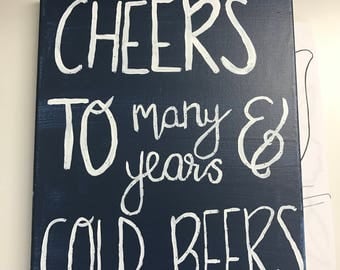 CHEERS
TO many &
years
COLD BEERS